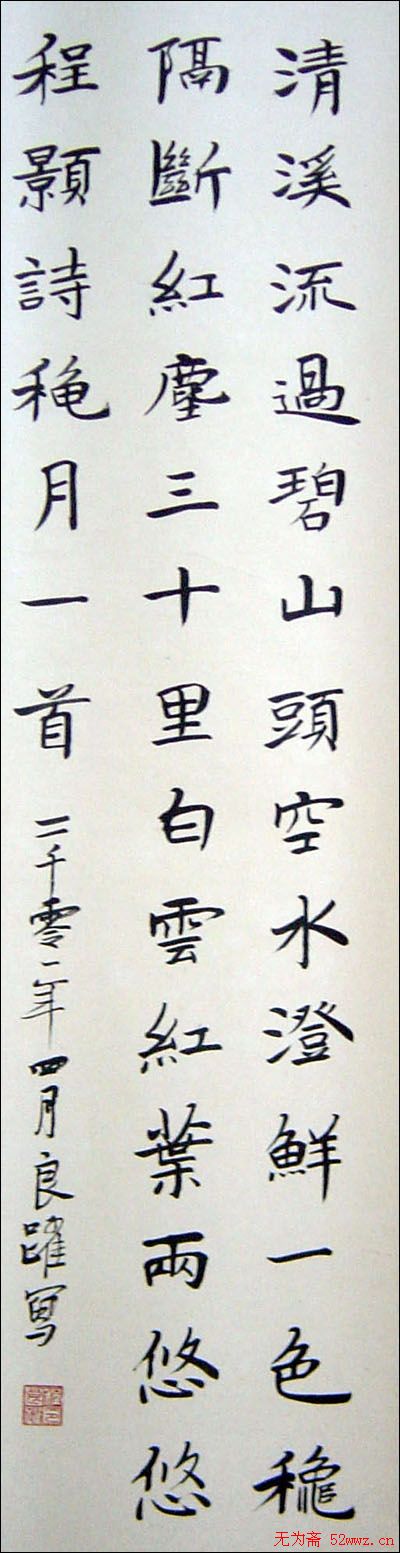 清溪流過碧山頭空水澄鮮一色穐
隔斷紅塵三十里白雲紅葉兩悠悠
程顥詩穐月一首
二千零二年四月良躍寫
无为斋 52wwz.cn